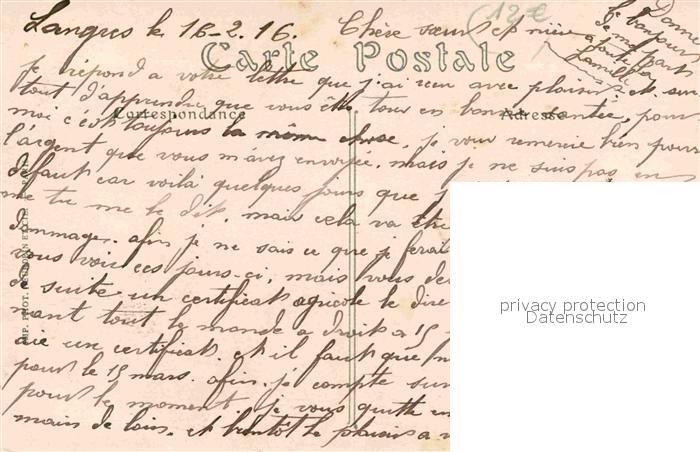 Langres le 16-2.16. Chère sœur et nièce
12 €
Donne
le bonjour
de ma part
a toute la
famille
Carte Postale
je répond a votre lettre que j'ai reçu avec plaisir. et surtout
tout d'apprendre que vous êtes tous en bonne santée, pour
Correspondance
Adresse
moi c'est toujours la même chose, je vous remercie bien pour
l'argent que vous m'avez envoyée. mais je ne suis pas en
défaut car voilà quelques jours que j
me tu me le dit, mais cela va être
dommage. afin je ne sais ce que je ferai
vous voir ces jours-ci, mais vous de
et suite un certificat agricole le dire
nant tout le monde a droit a 15
aie un certificat. et il faut que
pour le 15 mars. afin je compte sur
pour le moment je vous quitte en
main de loin. et bientôt le plaisir a v
IMP. PHOT.
privacy protection
Datenschutz